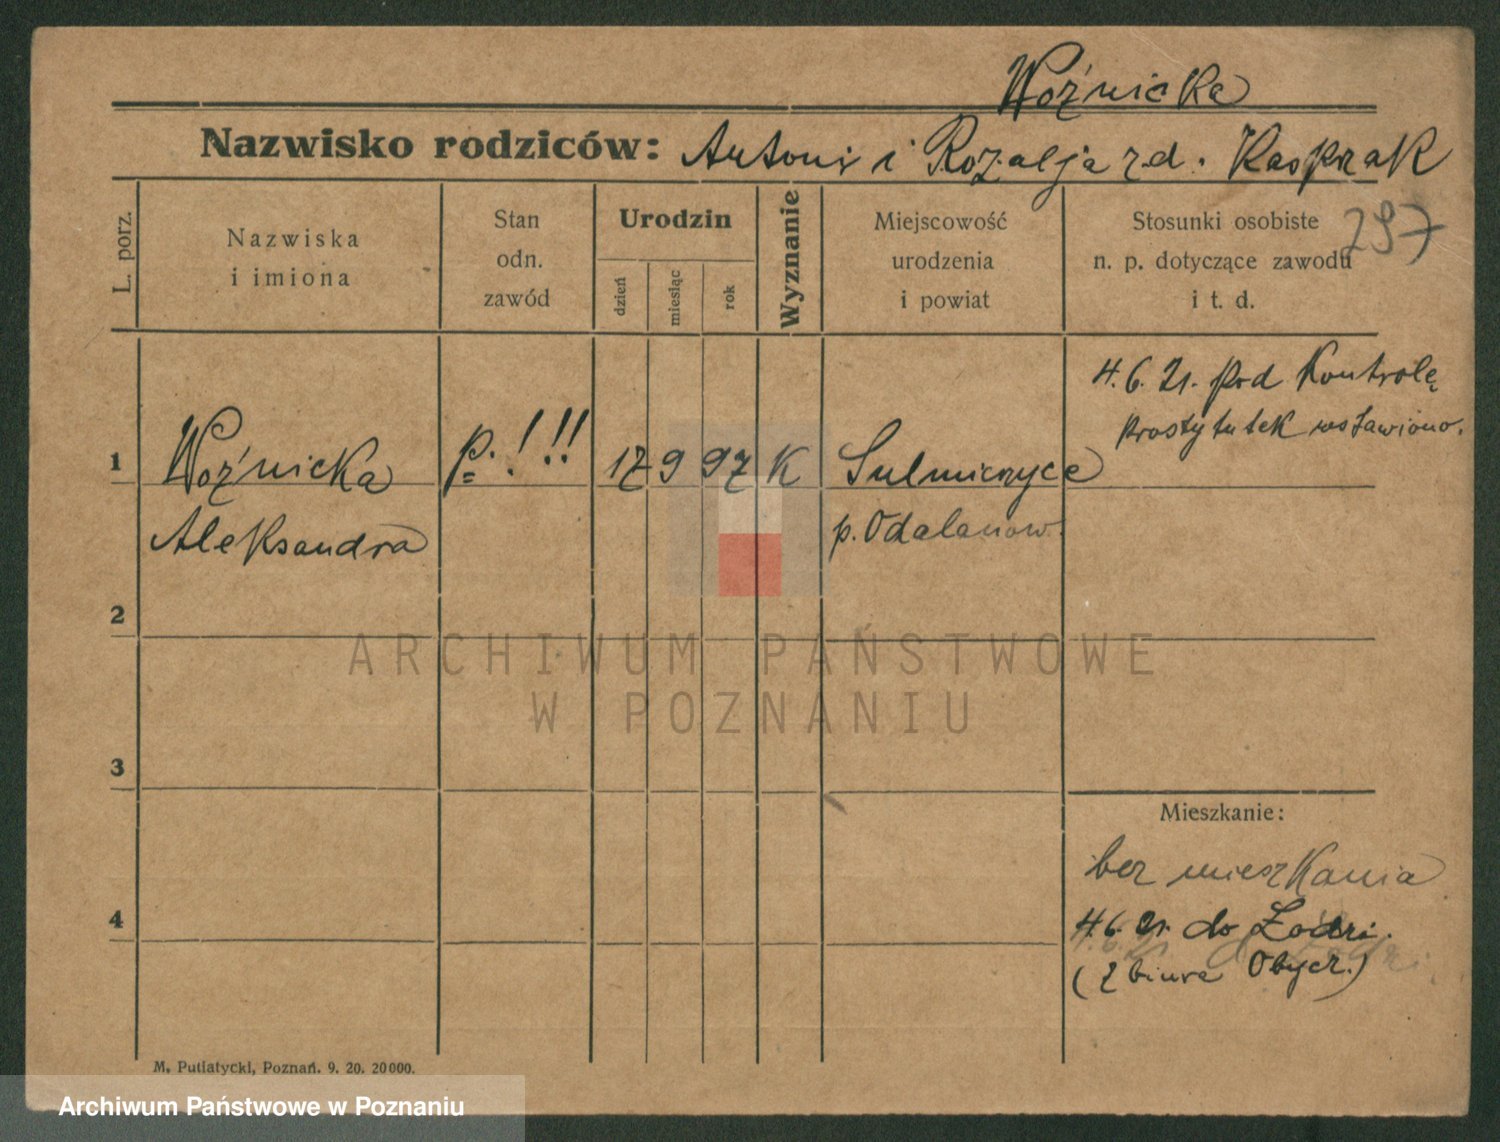 Woźnicka
Nazwisko rodziców: Antoni i Rozalja z d. Kasprzak
L. porz.
Nazwiska
i imiona
Stan
odn.
zawód
Urodzin
dzień
miesiąc
rok
Wyznanie
Miejscowość
urodzenia
i powiat
Stosunki osobiste
n. p. dotyczące zawodu
i t. d.
297
4.6.21. pod Kontrolę
prostytutek wstawiono.
1
Woźnicka
Aleksandra
p. ! !!
17 9 97 K
Sulmierzyce
p. Odalanow.
2
3
4
Mieszkanie:
bez mieszkania
4.6.21. do Łodzi.
(z biura Obycz.)
M. Putiatycki, Poznań. 9. 20. 20 000.
ARCHIWUM PAŃSTWOWE
W POZNANIU
Archiwum Państwowe w Poznaniu